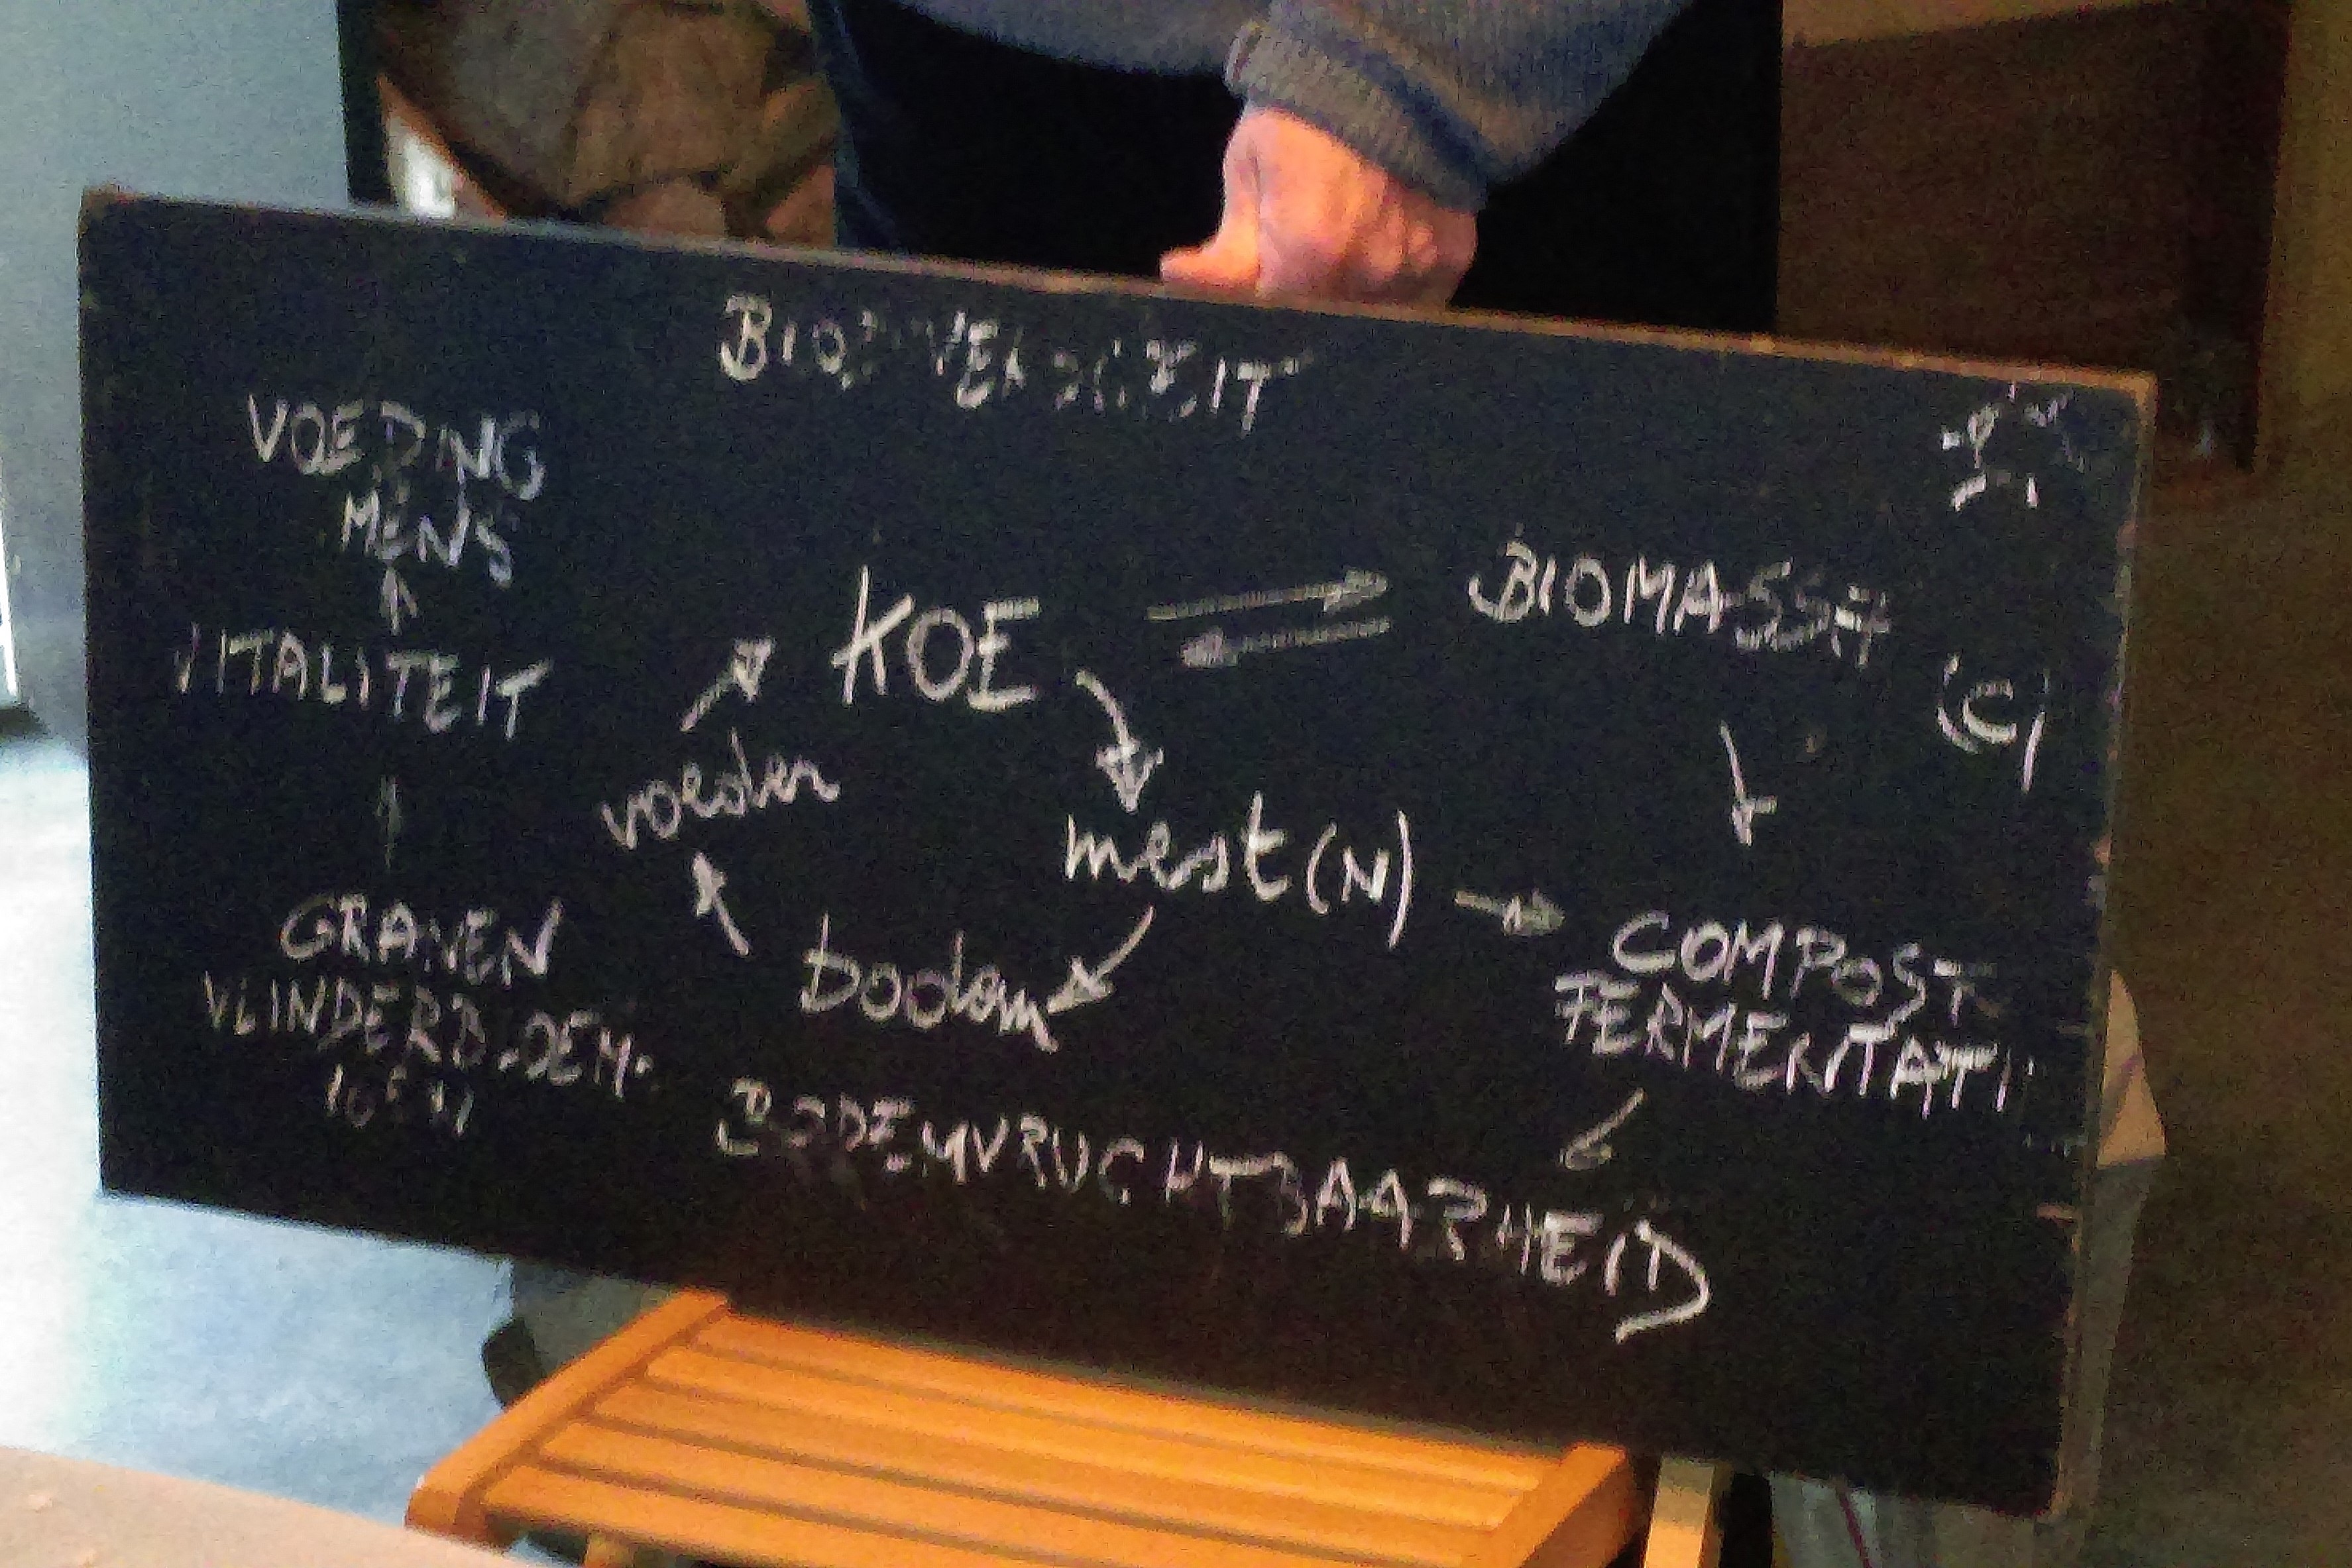 BIODIVERSITEIT
VOEDING
MENS
VITALITEIT
KOE
BIOMASSA
(C)
voeder
mest (N)
bodem
GRANEN
VLINDERBLOEM.
COMPOST
FERMENTATI
BODEMVRUCHTBAARHEID